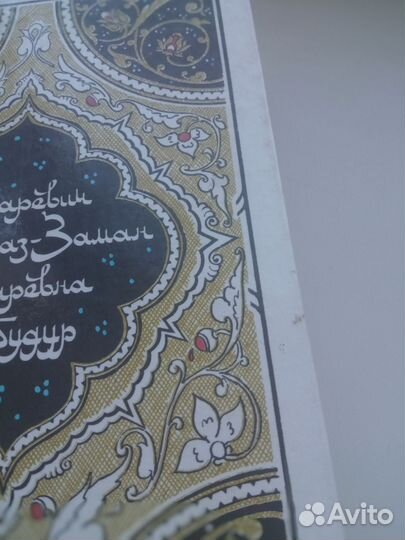 аревич
аз-Заман
аревна
Будур
Avito